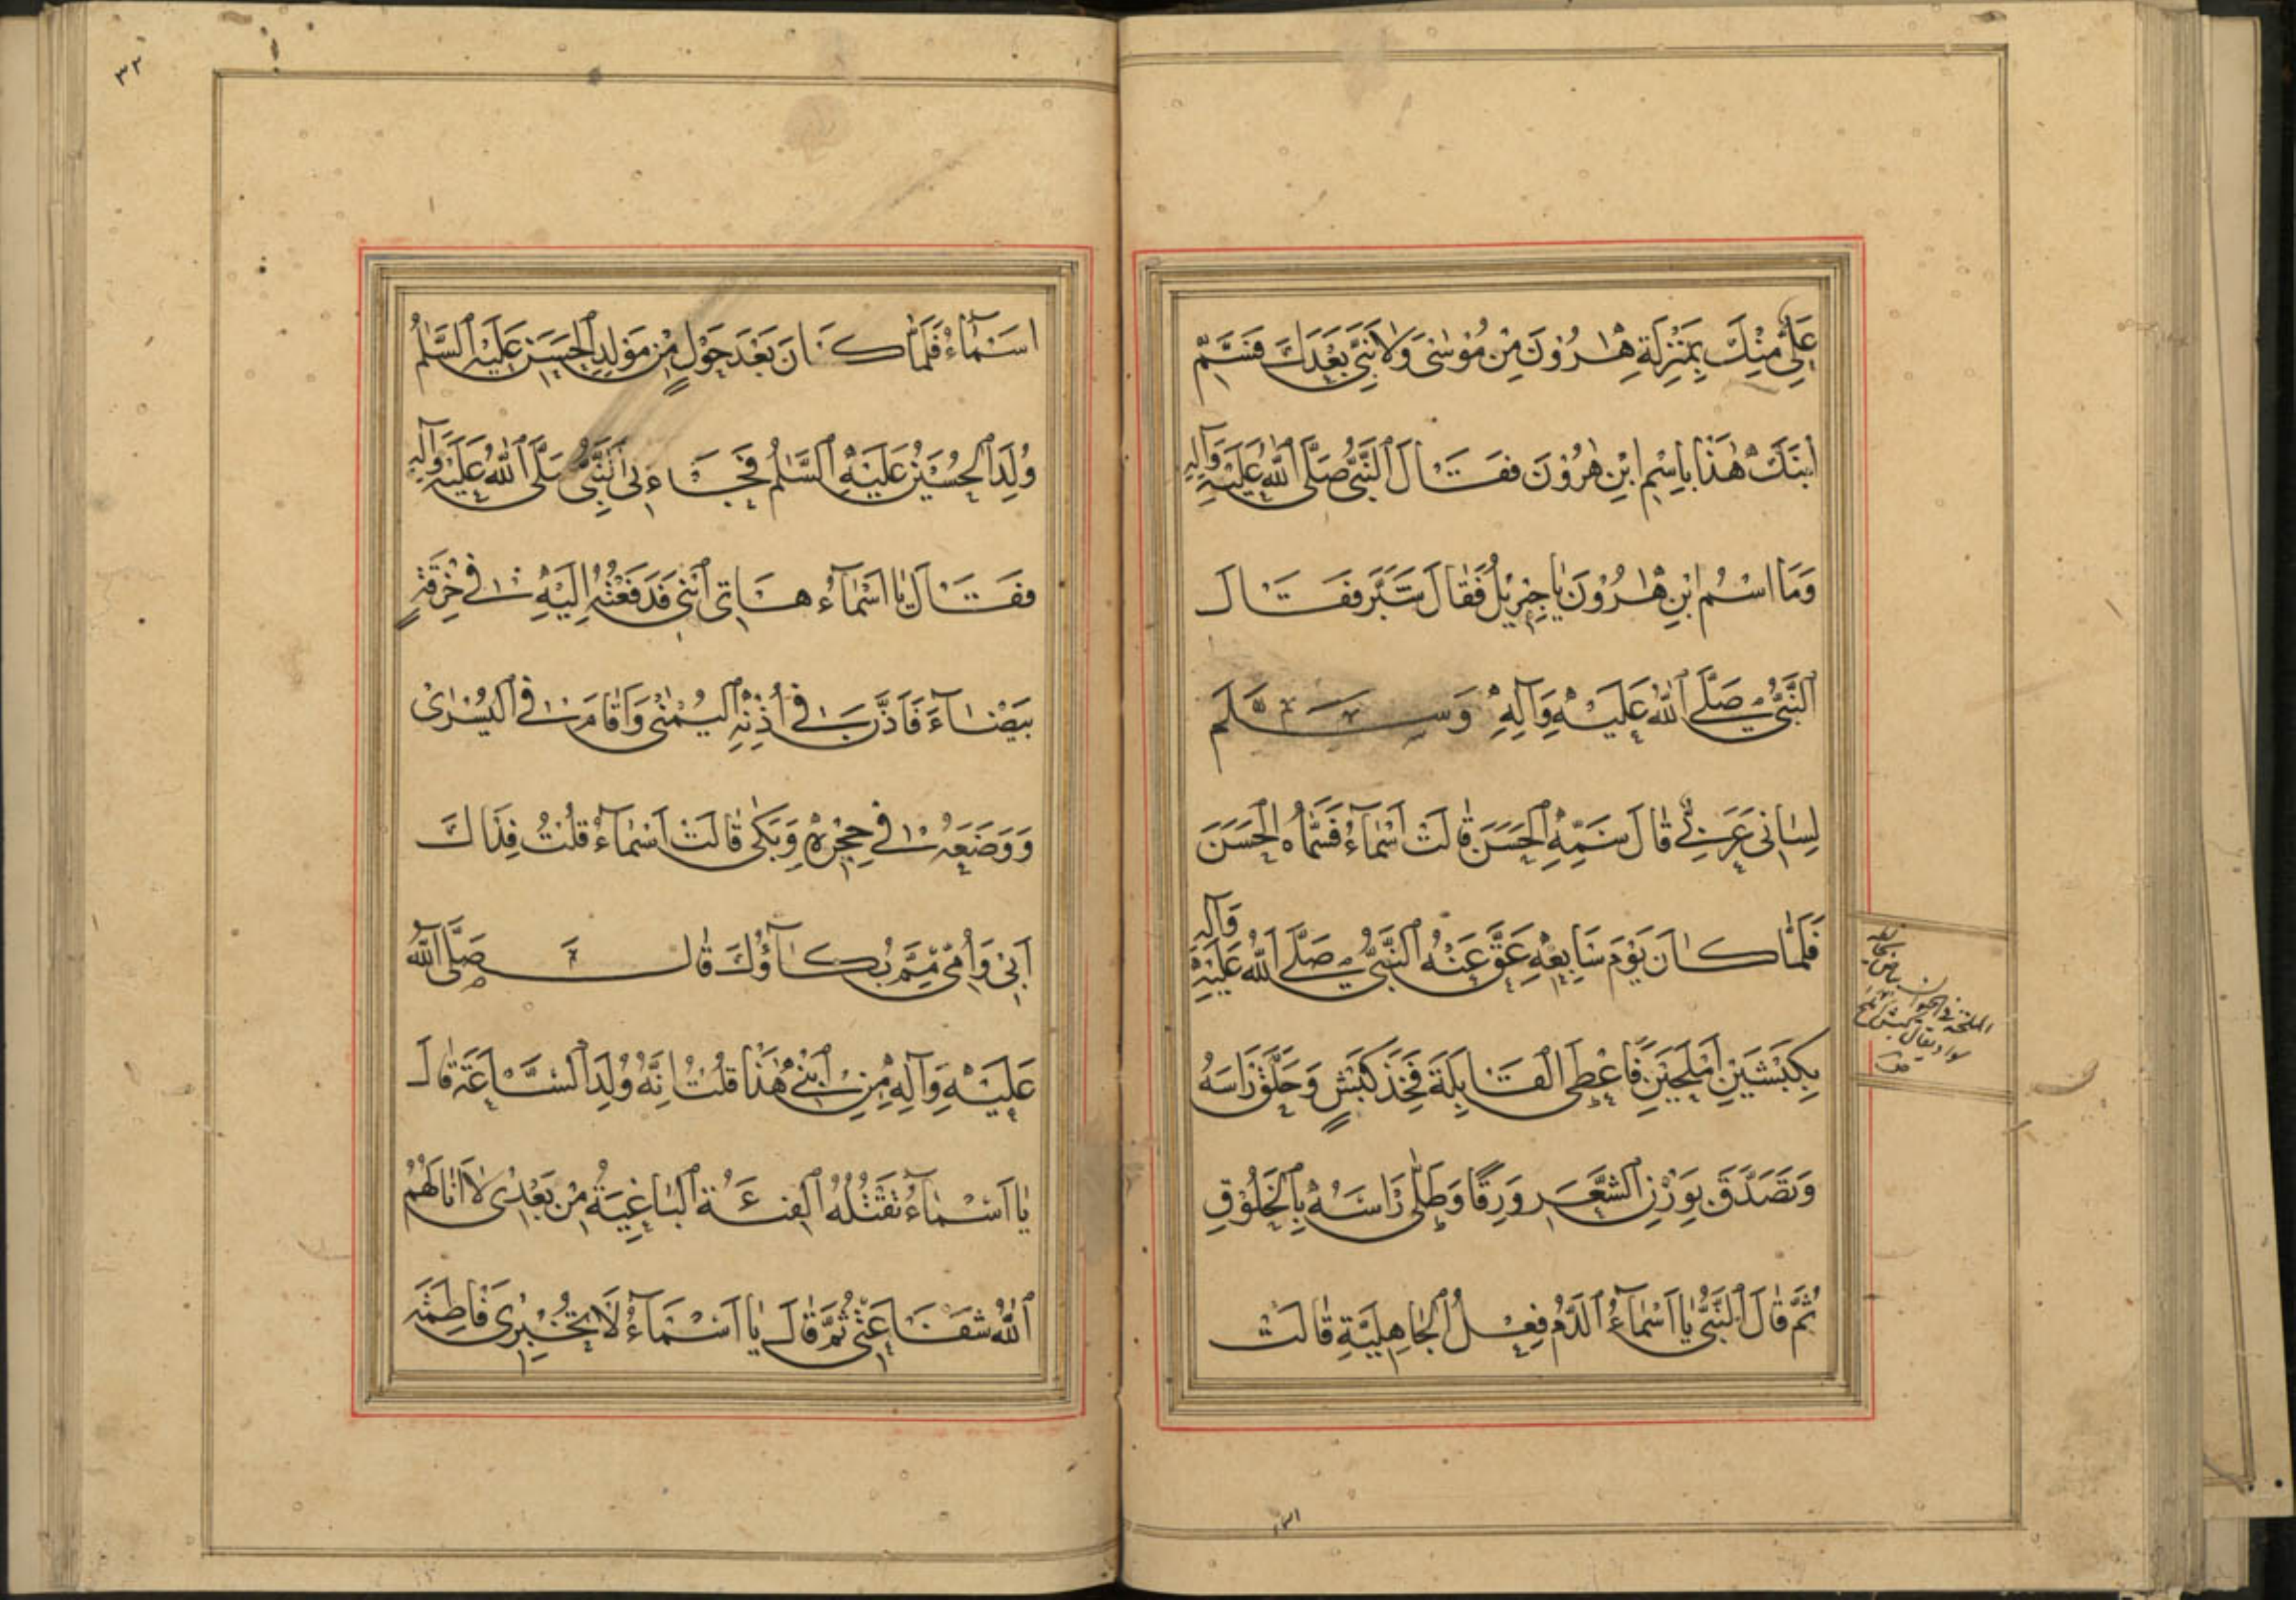 عَلِيٌّ مِنْكَ بِمَنْزِلَةِ هٰرُوْنَ مِنْ مُوْسٰى وَلَا نَبِيَّ بَعْدَكَ فَسَمِّ
ابْنَكَ هٰذَا بِاسْمِ ابْنِ هٰرُوْنَ فَقَالَ النَّبِيُّ صَلَّى اللّٰهُ عَلَيْهِ وَآلِهِ
وَمَا اسْمُ ابْنِ هٰرُوْنَ يَا جِبْرِيْلُ فَقَالَ شَبَّر فَقَالَ
النَّبِيُّ صَلَّى اللّٰهُ عَلَيْهِ وَآلِهِ وَسَلَّمَ
لِسَانِي عَرَبِيٌّ قَالَ سَمِّهِ الْحَسَنَ قَالَتْ اَسْمَاءُ فَسَمَّاهُ الْحَسَنَ
فَلَمَّا كَانَ يَوْمَ سَابِعِهِ عَقَّ عَنْهُ النَّبِيُّ صَلَّى اللّٰهُ عَلَيْهِ وَآلِهِ
بِكَبْشَيْنِ اَمْلَحَيْنِ فَاَعْطَى الْقَابِلَةَ فَخِذَ كَبْشٍ وَحَلَقَ رَاْسَهُ
وَتَصَدَّقَ بِوَزْنِ الشَّعَرِ وَرِقًا وَطَلٰى رَاْسَهُ بِالْخَلُوْقِ
ثُمَّ قَالَ النَّبِيُّ يَا اَسْمَاءُ الدَّمُ فِعْلُ الْجَاهِلِيَّةِ قَالَتْ
اسماء
٣٣
اَسْمَاءُ فَلَمَّا كَانَ بَعْدَ حَوْلٍ مِنْ مَوْلِدِ الْحَسَنِ عَلَيْهِ السَّلٰمُ
وُلِدَ الْحُسَيْنُ عَلَيْهِ السَّلٰمُ فَجَاءَنِي النَّبِيُّ صَلَّى اللّٰهُ عَلَيْهِ وَآلِهِ
فَقَالَ يَا اَسْمَآءُ هَاتِي ابْنِي فَدَفَعْتُهُ اِلَيْهِ فِي خِرْقَةٍ
بَيْضَآءَ فَاَذَّنَ فِي اُذُنِهِ الْيُمْنٰى وَاَقَامَ فِي الْيُسْرٰى
وَوَضَعَهُ فِي حِجْرِهِ وَبَكٰى قَالَتْ اَسْمَآءُ قُلْتُ فِدَاكَ
اَبِي وَاُمِّي مِمَّ بُكَآؤُكَ قَالَ صَلَّى اللّٰهُ
عَلَيْهِ وَآلِهِ مِنِ ابْنِي هٰذَا قُلْتُ اِنَّهُ وُلِدَ السَّاعَةَ قَالَ
يَا اَسْمَآءُ تَقْتُلُهُ الْفِئَةُ الْبَاغِيَةُ مِنْ بَعْدِي لَا اَنَالَهُمُ
اللّٰهُ شَفَاعَتِي ثُمَّ قَالَ يَا اَسْمَآءُ لَا تُخْبِرِي فَاطِمَةَ